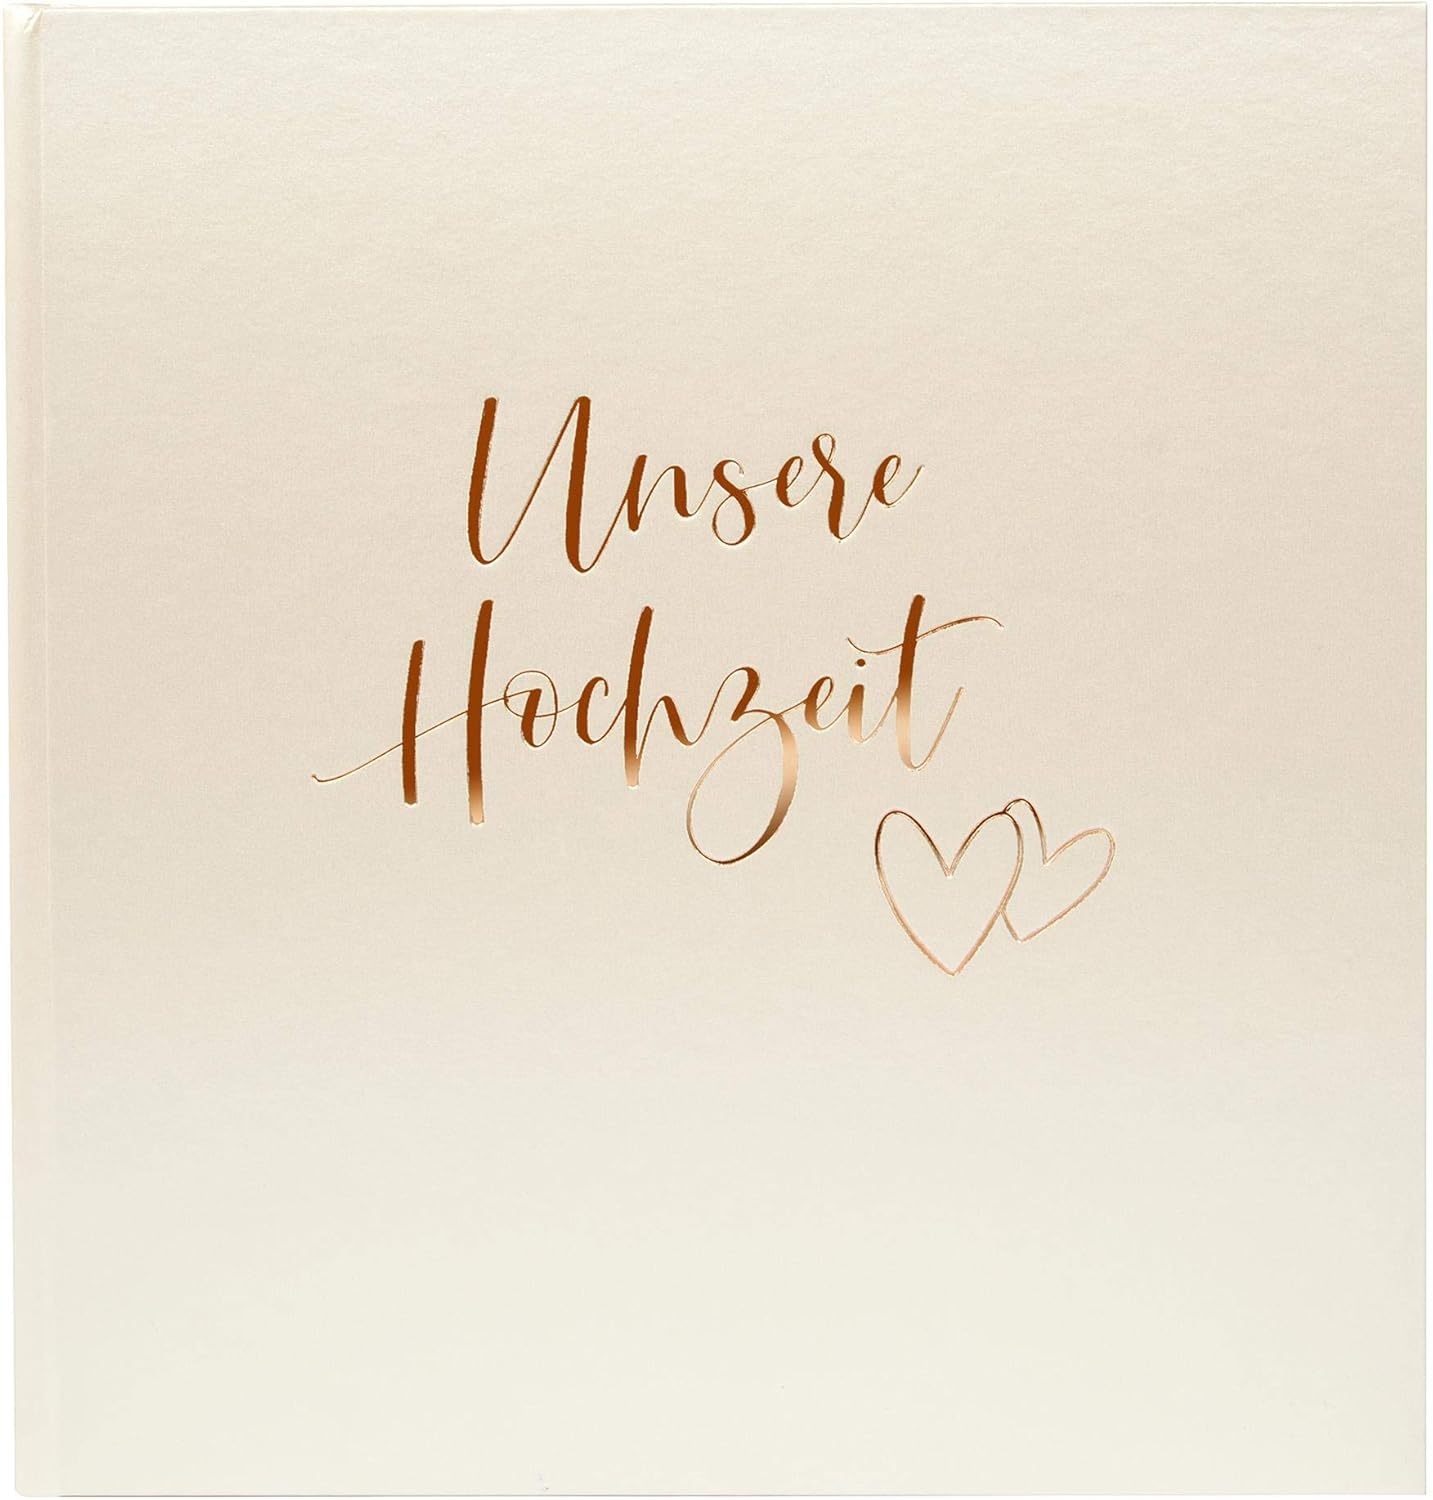 Unsere
Hochzeit